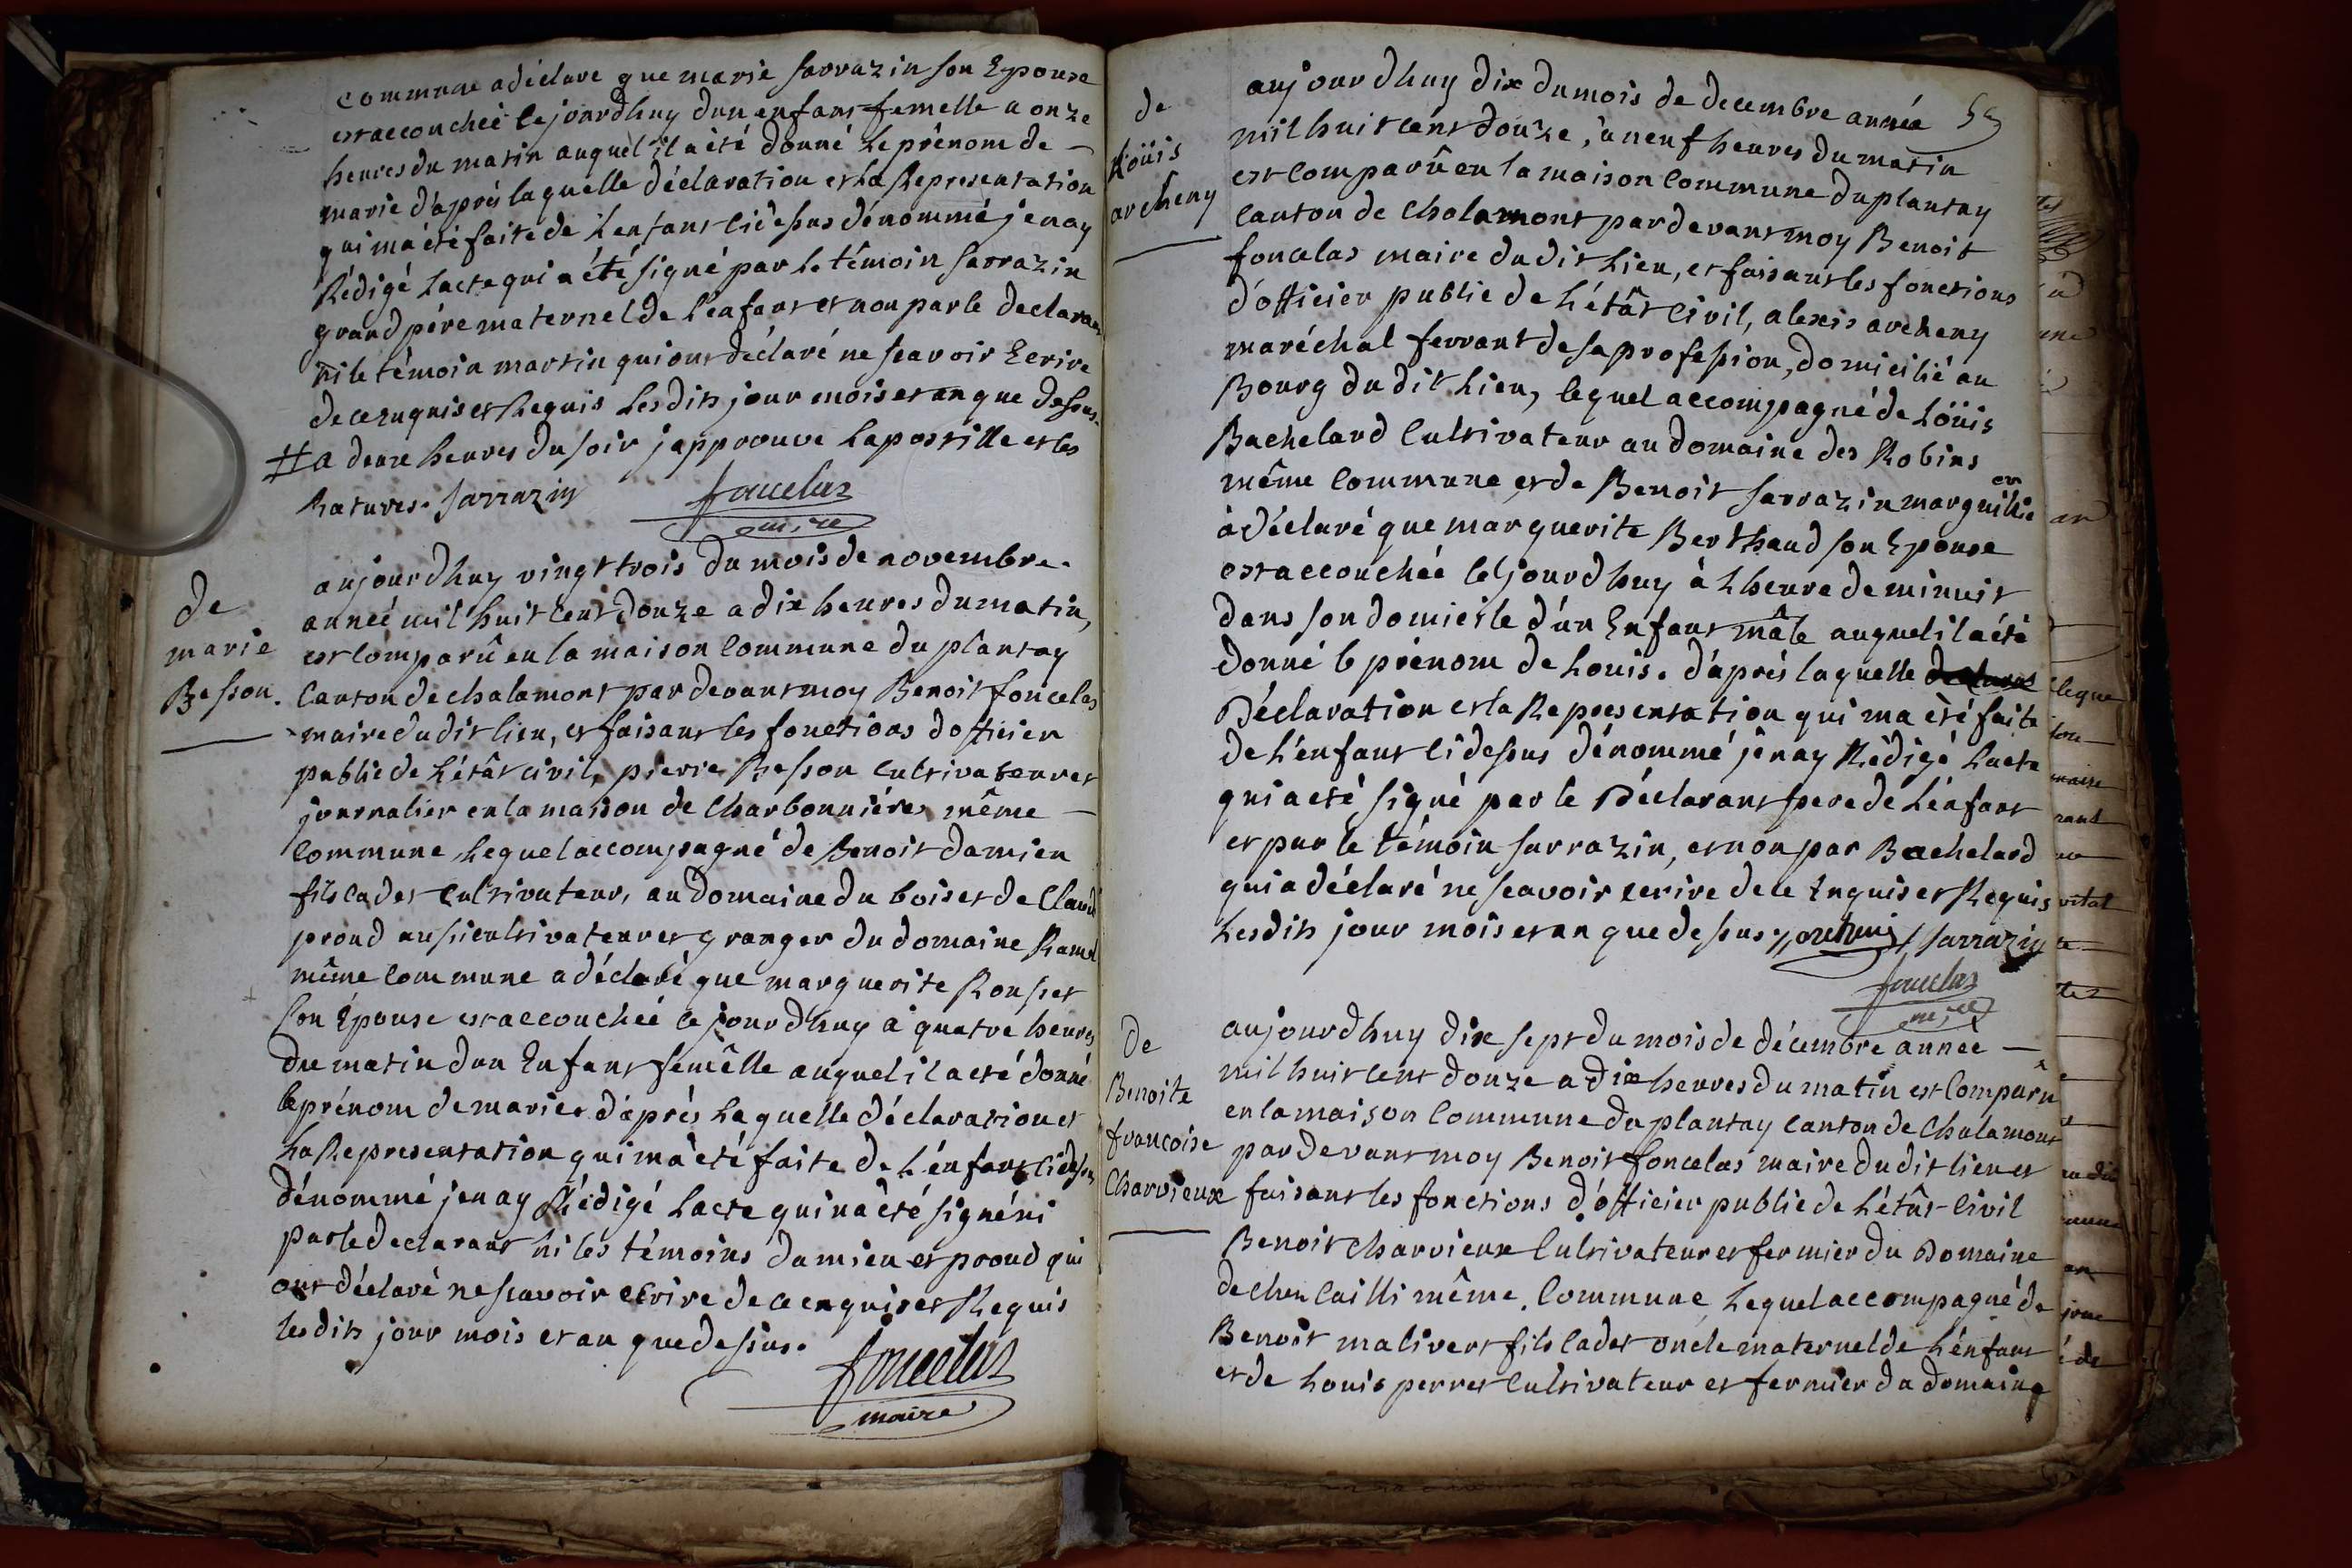 commune a déclare que marie sarrazin son Epouse
est accouchée cejourdhuy dun enfant femelle a onze
heures du matin auquel il a été donné le prénom de
marie d'aprés laquelle déclaration et la Representation
qui m'a été faite de L'enfant cidessus dénommé jenay
Rédigé Lacte qui a été signé par le témoin sarrazin
grand pére maternel de L'enfant et non par le declarant
ni le témoin martin qui ont déclaré ne scavoir Ecrire
de ce enquis et Requis Lesdits jour mois et an que dessus.
# a deux heures du soir japprouve Lapostille et les
Ratures. Sarrazin foncelas
maire
de
marie
Besson.
aujourdhuy vingt trois du mois de novembre.
année mil huit cent douze a dix heures du matin,
est comparû en la maison commune du plantay
Canton de chalamont par devant moy Benoit foncelas
maire dudit lieu, et faisant les fonctions d'officier
public de L'état civil, pierre Besson cultivateur et
journalier en la maison de Charbonniéres même
commune, Lequel accompagné de Benoit damien
fils cadet cultivateur, au domaine du bois et de Claude
proud aussi cultivateur et granger du domaine Ramel
même commune a déclaré que marguerite Rousset
son Epouse est accouchéé cejourdhuy a quatre heures
du matin dun Enfant femêlle auquel il a eté donné
le prénom de marie. d'aprés Laquelle déclaration et
La Representation qui m'a été faite de L'énfant cidessus
dénommé jenay Rédigé Lacte qui na été signé ni
par le declarant ni les témoins damien et proud qui
ont déclaré ne scavoir ecrire de ce enquis et Requis
lesdits jour mois et an que dessus.
foncelas
maire
59
de
Loüis
archeny
aujourdhuy dix du mois de decembre année
mil huit cent douze, a neuf heures du matin
est comparû en la maison commune du plantay
Canton de Chalamont par devant moy Benoit
foncelas maire dudit Lieu, et faisant les fonctions
d'officier public de L'étât civil, alexis archeny
maréchal ferrant de sa profession, domicilié au
Bourg dudit Lieu, lequel accompagné de Loüis
Bachelard cultivateur au domaine des Robins
même commune et de Benoit sarrazin marguillier
à déclaré que marguerite Berthaud son Epouse
est accouchéé cejourdhuy à L'heure de minuit
dans son domicile d'un Enfant mâle auquel il a été
donné le prénom de Louis. d'aprés laquelle
Déclaration et la Representation qui ma été faite
de L'énfant cidessus dénommé jénay Rédigé Lacte
qui a eté signé par le Déclarant pere de L'énfant
et par le témoin sarrazin, et non par Bachelard
qui a déclaré ne scavoir ecrire de ce Enquis et Requis
Lesdits jour mois et an que dessus. Sarrazin
foncelas
maire
de
Benoite
francoise
Charvieux
aujourdhuy dix sept du mois de décembre année
mil huit cent douze a dix heures du matin est Comparû
en la maison commune du plantay canton de Chalamont
par devant moy Benoit foncelas maire dudit lieu et
faisant les fonctions d'officier public de L'étât civil
Benoit Charvieux Cultivateur et fermier du Domaine
de même Commune Lequel accompagné de
Benoit malivert fils cadet oncle maternel de L'énfant
et de Louis perret cultivateur et fermier du domaine